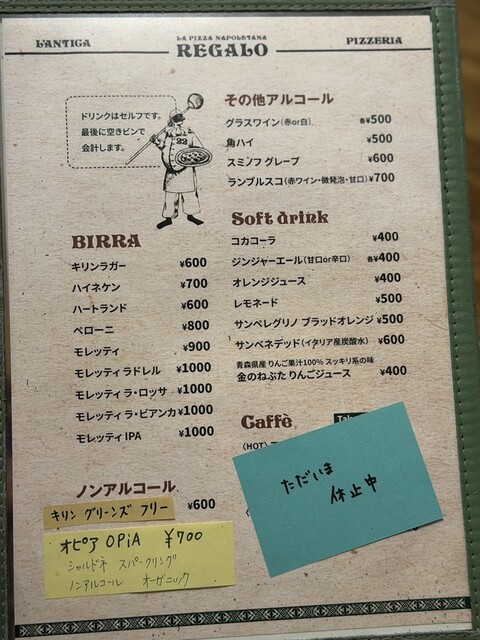 L'ANTICA
LA PIZZA NAPOLETANA
REGALO
PIZZERIA
ドリンクはセルフです。
最後に空きビンで
会計します。
22
その他アルコール
グラスワイン(赤or白) 各¥500
角ハイ ¥500
スミノフ グレープ ¥600
ランブルスコ(赤ワイン・微発泡・甘口) ¥700
Soft drink
コカコーラ ¥400
ジンジャーエール(甘口or辛口) 各¥400
オレンジジュース ¥400
レモネード ¥500
サンペレグリノ ブラッドオレンジ ¥500
サンベネデッド(イタリア産炭酸水) ¥600
青森県産 りんご果汁100% スッキリ系の味
金のねぶた りんごジュース ¥400
BIRRA
キリンラガー ¥600
ハイネケン ¥700
ハートランド ¥600
ペローニ ¥800
モレッティ ¥900
モレッティ ラドレル ¥1000
モレッティ ラ・ロッサ ¥1000
モレッティ ラ・ビアンカ ¥1000
モレッティ IPA ¥1000
ノンアルコール
キリン グリーンズ フリー ¥600
オピア OPiA ¥700
シャルドネ スパークリング
ノンアルコール オーガニック
Caffè
(HOT)
ただいま
休止中
REGALO